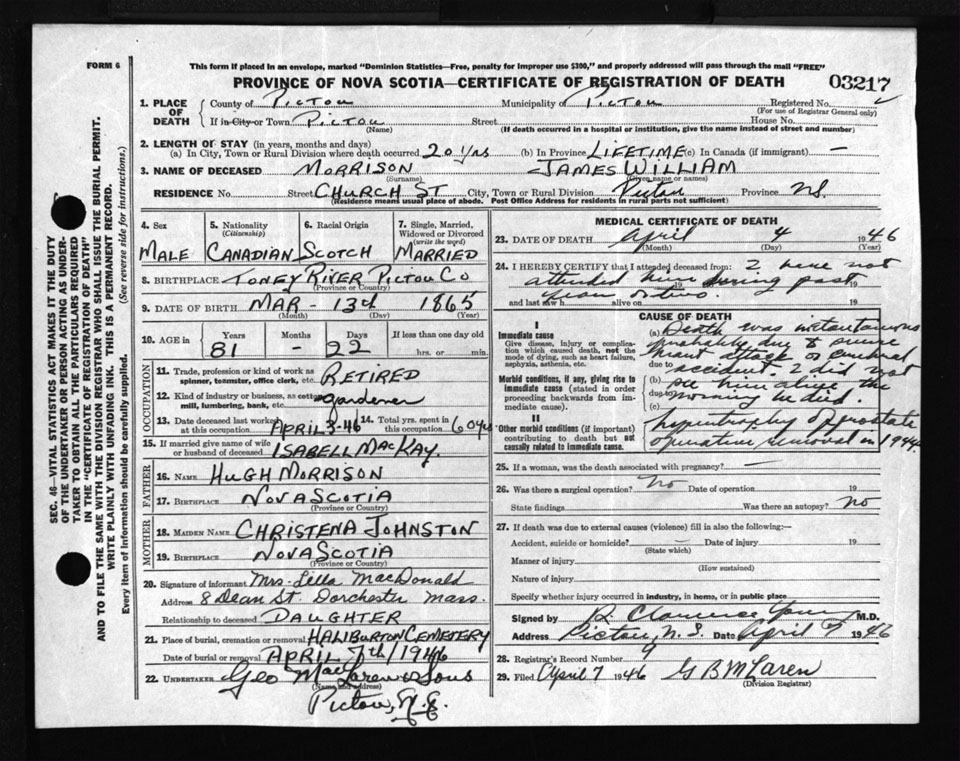 FORM 6
This form if placed in an envelope, marked "Dominion Statistics—Free, penalty for improper use $300," and properly addressed will pass through the mail "FREE"
PROVINCE OF NOVA SCOTIA—CERTIFICATE OF REGISTRATION OF DEATH 03217
1. PLACE OF DEATH County of Pictou Municipality of Pictou Registered No.
(For use of Registrar General only)
If in City or Town Pictou Street House No.
(Name) (If death occurred in a hospital or institution, give the name instead of street and number)
2. LENGTH OF STAY (in years, months and days)
(a) In City, Town or Rural Division where death occurred 20 yrs (b) In Province LIFETIME (c) In Canada (if immigrant) —
3. NAME OF DECEASED MORRISON JAMES WILLIAM
(Surname) (Given name or names)
RESIDENCE No. Street CHURCH ST City, Town or Rural Division Pictou Province N.S.
(Residence means usual place of abode. Post Office Address for residents in rural parts not sufficient)
SEC. 46—VITAL STATISTICS ACT MAKES IT THE DUTY
OF THE UNDERTAKER OR PERSON ACTING AS UNDER-
TAKER TO OBTAIN ALL THE PARTICULARS REQUIRED
IN THE "CERTIFICATE OF REGISTRATION OF DEATH"
AND TO FILE THE SAME WITH THE DIVISION REGISTRAR WHO SHALL ISSUE THE BURIAL PERMIT.
WRITE PLAINLY WITH UNFADING INK. THIS IS A PERMANENT RECORD.
Every item of information should be carefully supplied. (See reverse side for instructions.)
4. Sex 5. Nationality (Citizenship) 6. Racial Origin 7. Single, Married, Widowed or Divorced (write the word)
MALE CANADIAN SCOTCH MARRIED
8. BIRTHPLACE TONEY RIVER PICTOU CO
(Province or Country)
9. DATE OF BIRTH MAR - 13th 1865
(Month) (Day) (Year)
10. AGE in Years Months Days If less than one day old
81 - 22 hrs. or min.
OCCUPATION
11. Trade, profession or kind of work as spinner, teamster, office clerk, etc. RETIRED
12. Kind of industry or business, as cotton mill, lumbering, bank, etc. gardener
13. Date deceased last worked at this occupation APRIL 3-46 14. Total yrs. spent in this occupation 60 yrs
15. If married give name of wife or husband of deceased ISABELL MACKAY.
FATHER
16. NAME HUGH MORRISON
17. BIRTHPLACE NOVA SCOTIA
(Province or Country)
MOTHER
18. MAIDEN NAME CHRISTENA JOHNSTON
19. BIRTHPLACE NOVA SCOTIA
(Province or Country)
20. Signature of informant Mrs. Lilla MacDonald
Address 8 Dean St. Dorchester Mass.
Relationship to deceased DAUGHTER
21. Place of burial, cremation or removal HALIBURTON CEMETERY
Date of burial or removal APRIL 7th/1946
22. UNDERTAKER Geo MacLaren & Sons
(Name and address)
Pictou, N.S.
MEDICAL CERTIFICATE OF DEATH
23. DATE OF DEATH April 4 1946
(Month) (Day) (Year)
24. I HEREBY CERTIFY that I attended deceased from: I have not
attended him during past 19
and last saw h alive on year or two. 19
CAUSE OF DEATH
I
Immediate cause
Give disease, injury or complication which caused death, not the mode of dying, such as heart failure, asphyxia, asthenia, etc.
Morbid conditions, if any, giving rise to immediate cause (stated in order proceeding backwards from immediate cause).
II
Other morbid conditions (if important) contributing to death but not causally related to immediate cause.
(a) Death was instantaneous
probably due to severe
due to heart attack or cerebral
accident. I did not
(b) see him alive the
due to morning he died.
(c)
hypertrophy of prostate
operative removal in 1944.
25. If a woman, was the death associated with pregnancy? —
26. Was there a surgical operation? no Date of operation 19
State findings Was there an autopsy? no
27. If death was due to external causes (violence) fill in also the following:—
Accident, suicide or homicide? — Date of injury 19
(State which)
Manner of injury
(How sustained)
Nature of injury
Specify whether injury occurred in industry, in home, or in public place
Signed by R Clarence Young M.D.
Address Pictou, N.S. Date April 7 1946
28. Registrar's Record Number
29. Filed April 7 1946 G B McLaren
(Division Registrar)